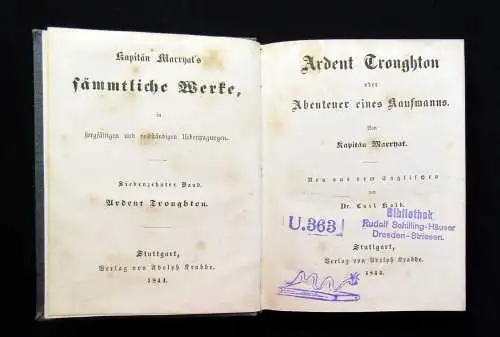 Kapitän Marryat's
sämmtliche Werke,
in
sorgfältigen und vollständigen Uebertragungen.
Siebenzehnter Band.
Ardent Troughton.
Stuttgart,
Verlag von Adolph Krabbe.
1844.
Ardent Troughton
oder
Abenteuer eines Kaufmanns.
Von
Kapitän Marryat.
Neu aus dem Englischen
von
Dr. Carl Kolb.
U.363
Bibliothek
Rudolf Schilling-Häuser
Dresden-Striesen.
Stuttgart,
Verlag von Adolph Krabbe.
1844.